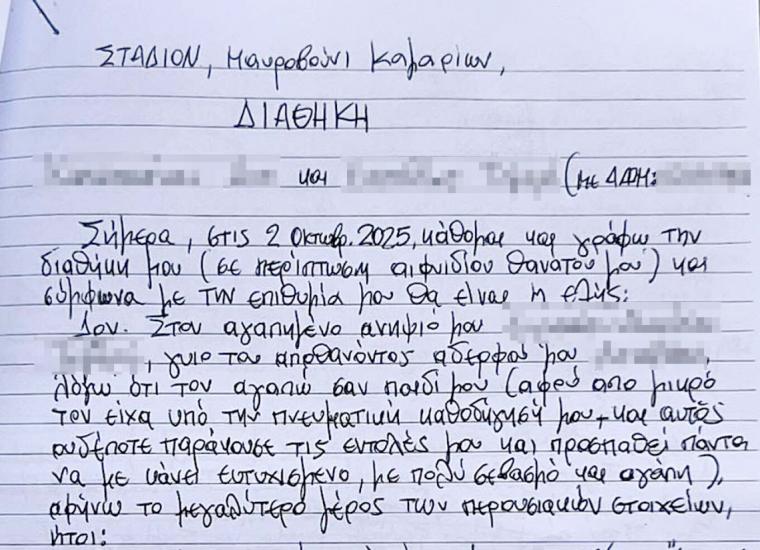 ΣΤΑΔΙΟΝ, Μαυροβούνι Καμαρίων,
ΔΙΑΘΗΚΗ
και (με ΑΔΜ:
Σήμερα, στις 2 Οκτωβρ. 2025, κάθομαι και γράφω την
διαθήκη μου (σε περίπτωση αιφνιδίου θανάτου μου) και
σύμφωνα με την επιθυμία μου θα είναι η εξής:
1ον. Στον αγαπημένο ανηψιό μου
, γυιο του αποθανόντος αδερφού μου ,
λόγω ότι τον αγαπώ σαν παιδί μου (αφού απο μικρό
τον είχα υπό την πνευματική καθοδήγησή μου, και αυτός
ουδέποτε παράκουσε τις εντολές μου και προσπαθεί πάντα
να με κάνει ευτυχισμένο, με πολύ σεβασμό και αγάπη),
αφήνω το μεγαλύτερο μέρος των περουσιακών στοιχείων,
ήτοι: